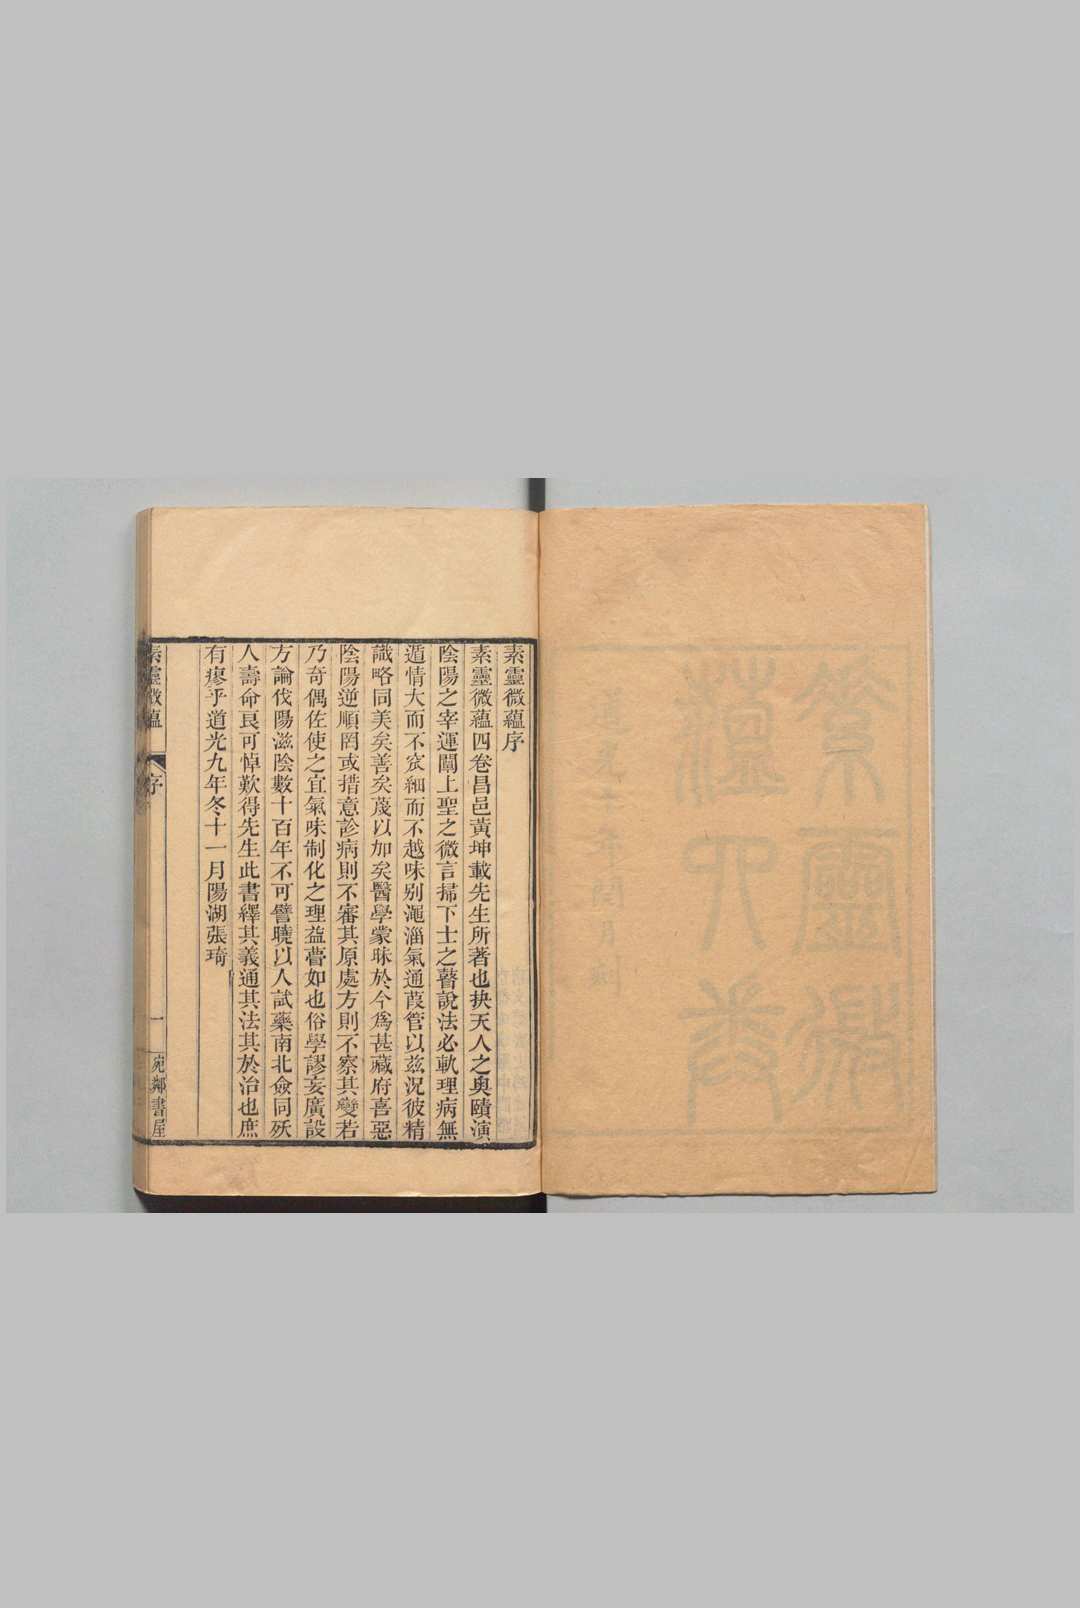 素靈微蘊序
素靈微蘊四卷昌邑黃坤載先生所著也抉天人之奥賾演
陰陽之宰運闡上聖之微言掃下士之瞽說法必軌理病無
遁情大而不窕細而不越味別澠淄氣通葭管以茲況彼精
識略同美矣善矣蔑以加矣醫學蒙昧於今爲甚藏府喜惡
陰陽逆順罔或措意診病則不審其原處方則不察其變若
乃奇偶佐使之宜氣味制化之理益瞢如也俗學謬妄廣設
方論伐陽滋陰數十百年不可譬曉以人試藥南北僉同殀
人壽命良可悼歎得先生此書繹其義通其法其於治也庶
有瘳乎道光九年冬十一月陽湖張琦
素靈微蘊
序
一
宛鄰書屋